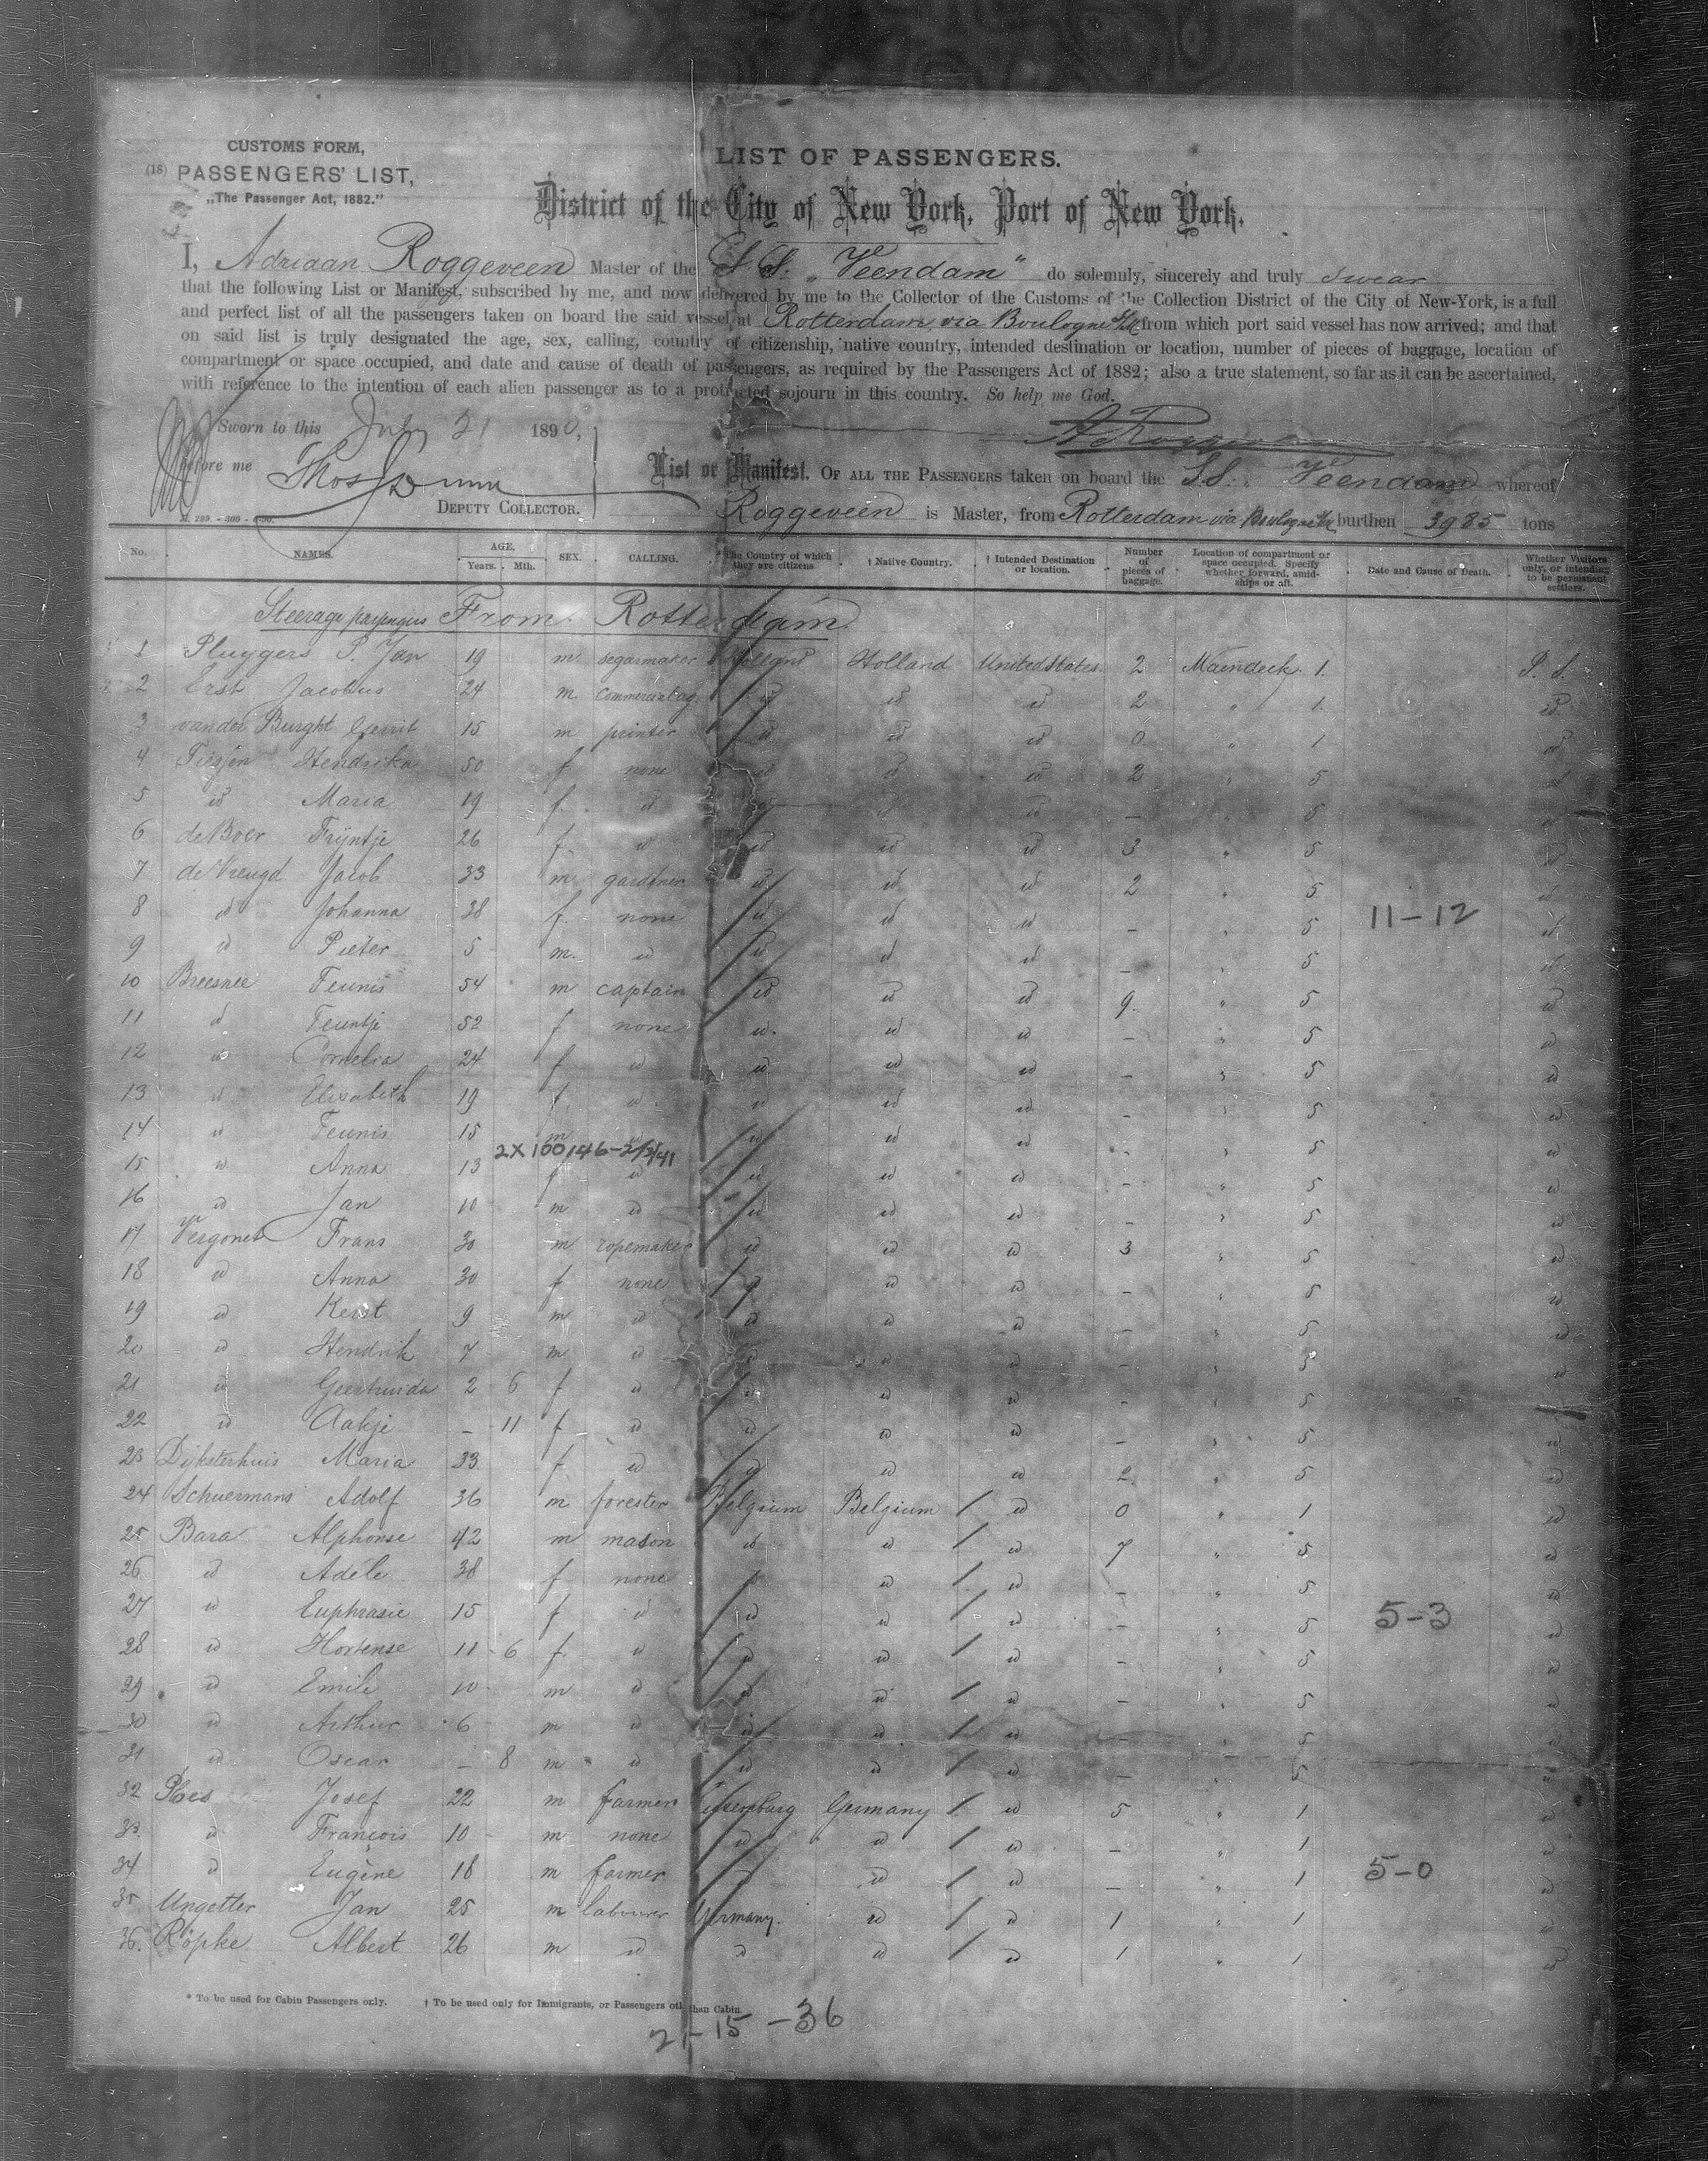 CUSTOMS FORM,
(18) PASSENGERS' LIST,
„The Passenger Act, 1882."
LIST OF PASSENGERS.
District of the City of New York, Port of New York.
I, Adriaan Roggeveen Master of the S.S. „Veendam" do solemnly, sincerely and truly swear
that the following List or Manifest, subscribed by me, and now delivered by me to the Collector of the Customs of the Collection District of the City of New-York, is a full
and perfect list of all the passengers taken on board the said vessel at Rotterdam via Boulogne from which port said vessel has now arrived; and that
on said list is truly designated the age, sex, calling, country of citizenship, native country, intended destination or location, number of pieces of baggage, location of
compartment or space occupied, and date and cause of death of passengers, as required by the Passengers Act of 1882; also a true statement, so far as it can be ascertained,
with reference to the intention of each alien passenger as to a protracted sojourn in this country. So help me God.
Sworn to this July 21 1890,
A Roggeveen
before me Thos Dunn
DEPUTY COLLECTOR.
List or Manifest. OF ALL THE PASSENGERS taken on board the S.S. Veendam whereof
Roggeveen is Master, from Rotterdam via Boulogne burthen 3985 tons
No. NAMES. AGE. Years. Mth. SEX. CALLING. * The Country of which they are citizens † Native Country. † Intended Destination or location. Number of pieces of baggage. Location of compartment or space occupied. Specify whether forward, amidships or aft. Date and Cause of Death. Whether Visitors only, or intending to be permanent settlers.
Steerage passengers From Rotterdam
1 Pluygers P. Jan 19 m segarmaker Holland Holland United States 2 Maindeck 1. P. S.
2 Erst Jacobus 24 m commercial ag id id id 2 " 1. id
3 van der Burght Gerrit 15 m printer id id id 0 " 1 id
4 Hendrika 50 f none id id id 2 " 5 id
5 id Maria 19 f id id id id — " 5 id
6 de Boer Trijntje 26 f id id id id 3 " 5 id
7 de Vreugd Jacob 33 m gardener id id id 2 " 5 id
8 id Johanna 38 f none id id id — " 5 id
11-12
9 id Pieter 5 m id id id id — " 5 id
10 Breesnee Teunis 54 m captain id id id 9 " 5 id
11 id Teuntje 52 f none id id id — " 5 id
12 id Cornelia 24 f id id id id — " 5 id
13 id Elizabeth 19 f id id id id — " 5 id
14 id Teunis 15 m id id id — " 5 id
2X100146-2/3/41
15 id Anna 13 f id id id id — " 5 id
16 id Jan 10 m id id id id — " 5 id
17 Vergonet Frans 30 m ropemaker id id id 3 " 5 id
18 id Anna 30 f none id id id — " 5 id
19 id Kerst 9 m id id id id — " 5 id
20 id Hendrik 7 m id id id id — " 5 id
21 id Geertruida 2 6 f id id id id — " 5 id
22 id Aaltje — 11 f id id id id — " 5 id
23 Dijksterhuis Maria 33 f id id id id 2 " 5 id
24 Schuermans Adolf 36 m forester Belgium Belgium id 0 " 1 id
25 Bara Alphonse 42 m mason id id id 7 " 5 id
26 id Adèle 38 f none id id id — " 5 id
27 id Euphrasie 15 f id id id id — " 5 id
5-3
28 id Hortense 11 6 f id id id id — " 5 id
29 id Emile 10 m id id id id — " 5 id
30 id Arthur 6 m id id id id — " 5 id
31 id Oscar — 8 m id id id id — " 5 id
32 Josef 22 m farmer Luxemburg Germany id 5 " 1 id
33 id François 10 m none id id id — " 1 id
34 id Eugène 18 m farmer id id id — " 1 id
5-0
35 Ungetter Jan 25 m labourer Germany id id 1 " 1 id
36. Röpke Albert 26 m id id id id 1 " 1 id
* To be used for Cabin Passengers only. † To be used only for Immigrants, or Passengers other than Cabin.
21-15-36